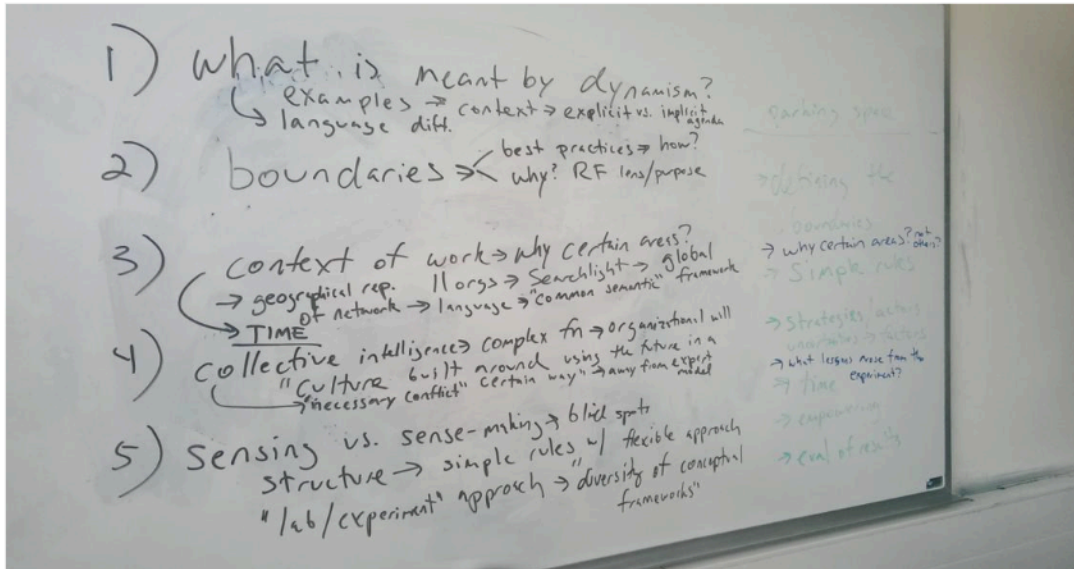 1) what is meant by dynamism?
↳ examples → context → explicit vs. implicit agenda
↳ language diff.
2) boundaries → < best practices → how?
why? RF lens/purpose
3) context of work → why certain areas?
→ geographical rep. 11 orgs → Searchlight → global
of network → language → "common semantic" framework
→ TIME
4) collective intelligence → complex fn → organizational will
"culture built around using the future in a
certain way" → away from expert model
→ "necessary conflict"
5) sensing vs. sense-making → blind spots
structure → simple rules w/ flexible approach
"lab/experiment" approach → "diversity of conceptual
frameworks"
parking space
→ defining the
boundaries
→ why certain areas? not others?
→ Simple rules
→ strategies/actors
uncertainties → factors
→ what lessons arose from the
experiment?
→ time
→ empowering
→ eval of results